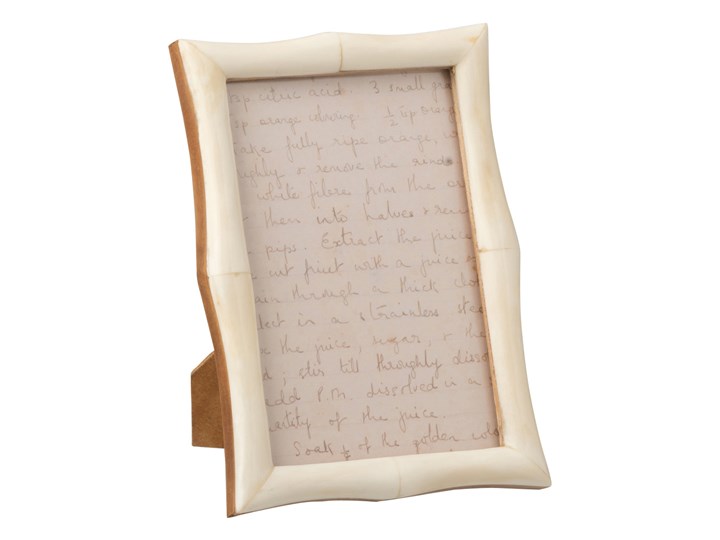 tsp. citric acid. 3 small
sp orange colouring. ½ tsp
fully ripe orange,
ghly & remove the
white fibre from the
then into halves &
pips. Extract the juice
cut fruit with a juice
through a thick
lect in a strainless
the juice, sugar, & the
; stir till throughly disso
add P.M. dissolved in a
ntity of the juice.
Soak ½ of the golden colo